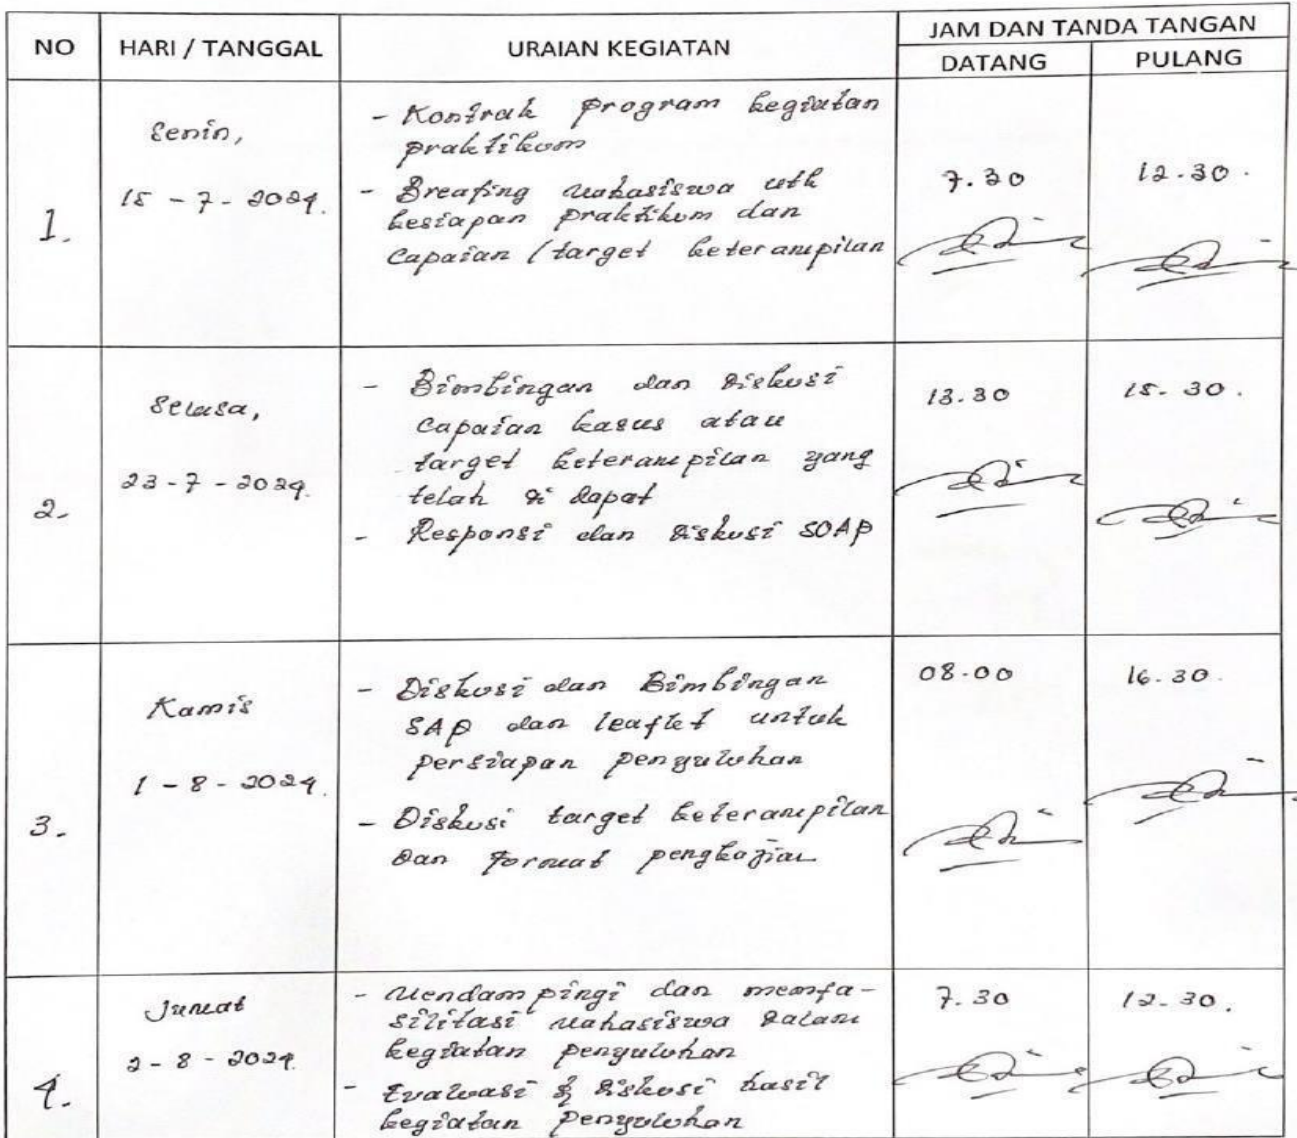 NO HARI / TANGGAL URAIAN KEGIATAN JAM DAN TANDA TANGAN
DATANG PULANG
1.
Senin,
15 - 7 - 2024.
- Kontrak program kegiatan
praktikum
- Breafing mahasiswa utk
kesiapan praktikum dan
capaian / target keterampilan
7.30
12.30.
2.
Selasa,
23 - 7 - 2024.
- Bimbingan dan diskusi
capaian kasus atau
target keterampilan yang
telah di dapat
- Responsi dan diskusi SOAP
13.30
15.30.
3.
Kamis
1 - 8 - 2024.
- Diskusi dan Bimbingan
SAP dan leaflet untuk
persiapan penyuluhan
- Diskusi target keterampilan
dan format pengkajian
08.00
16.30.
4.
Jumat
2 - 8 - 2024.
- Mendampingi dan memfa-
silitasi mahasiswa dalam
kegiatan penyuluhan
- Evaluasi & diskusi hasil
kegiatan penyuluhan
7.30
12.30.